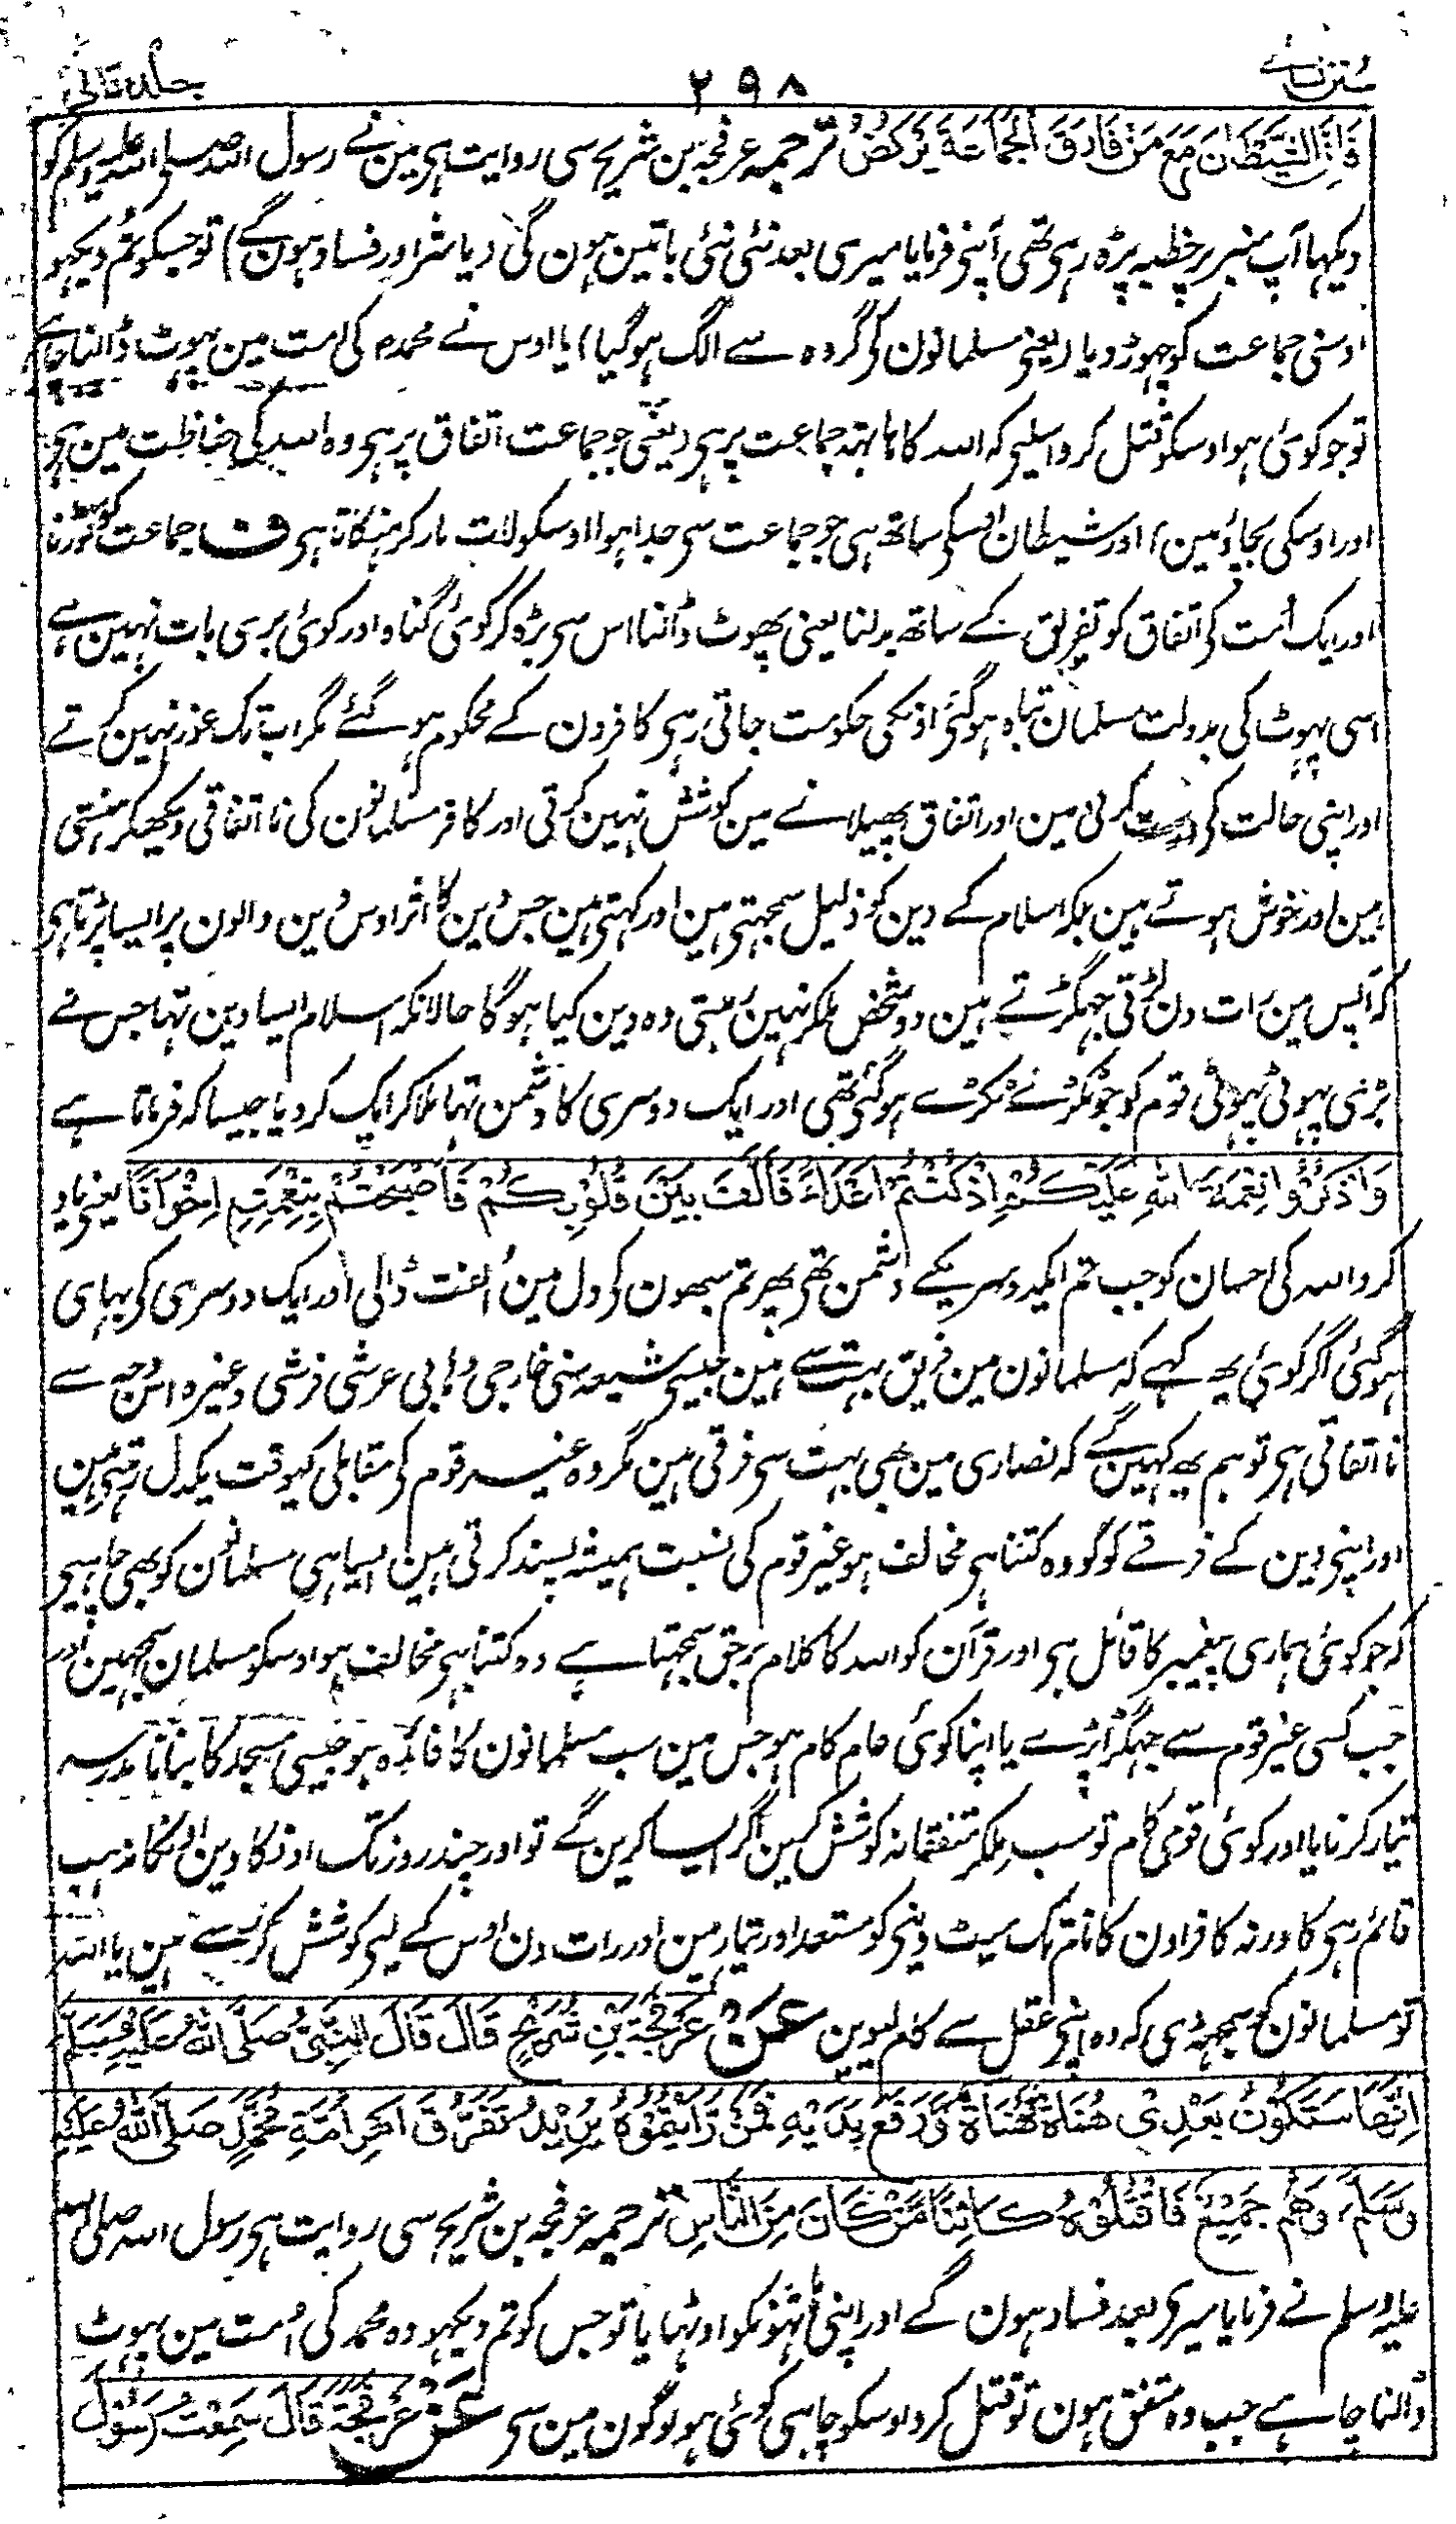 سنن نسائے ۲۹۸ جلد ثانی
فَاِنَّ الشَّيْطَانَ مَعَ مَنْ فَارَقَ الْجَمَاعَةَ يَرْكُضُ ترجمہ عرفجہ بن شریح سی روایت ہی مین نے رسول اللہ صلی اللہ علیہ وسلم کو
دیکہا آپ منبر پر خطبہ پڑہ رہی تھی آپنی فرمایا میری بعد نئی نئی باتین ہون گی (یا شر اور فساد ہون گے) تو جسکو تم دیکہو
اوسنی جماعت کو چہوڑ دیا (یعنی مسلمانون کی گروہ سے الگ ہو گیا) یا اوس نے محمدم کی امت مین پہوٹ ڈالنا چاہے
تو جو کوئی ہو اوسکو قتل کرو اسلیے کہ اللہ کا ہاتہہ جماعت پر ہی (یعنی جو جماعت اتفاق پر ہی وہ اللہ کی حفاظت مین ہی
اور اوسکی بچاؤ مین) اور شیطان اوسکی ساتھ ہی جو جماعت سی جدا ہوا اوسکو لات مار کر ہنکاتا ہی ف جماعت کو توڑنا
اور ایک اُمت کی اتفاق کو تفریق کے ساتھ بدلنا یعنی پھوٹ ڈالنا اس سی بڑہ کر کوئی گناہ اور کوئی بری بات نہین ہے
اسی پہوٹ کی بدولت مسلمان تباہ ہو گئی اونکی حکومت جاتی رہی کافرون کے محکوم ہو گئے مگر اب تک غور نہین کرتے
اور اپنی حالت کی درست کرنی مین اور اتفاق پھیلانے مین کوشش نہین کرتی اور کافر مسلمانون کی نا اتفاقی دیکھکر ہنستی
ہین اور خوش ہوتے ہین بلکہ اسلام کے دین کو ذلیل سمجہتی ہین اور کہتی ہین جس دین کا اثر اوس دین والون پر ایسا پڑتا ہی
کہ آپس مین رات دن لڑتی جہگڑتے ہین دو شخص ملکر نہین بستی وہ دین کیا ہوگا حالانکہ اسلام ایسا دین تہا جس نے
بڑی پہوٹی پہوٹی قوم کو جو ٹکڑے ٹکڑے ہو گئی تھی اور ایک دوسری کا دشمن تہا ملا کر ایک کر دیا جیسا کہ فرماتا ہے
وَاذْكُرُوْا نِعْمَةَ اللّٰهِ عَلَيْكُمْ اِذْ كُنْتُمْ اَعْدَاءً فَاَلَّفَ بَيْنَ قُلُوْبِكُمْ فَاَصْبَحْتُمْ بِنِعْمَتِهٖ اِخْوَانًا یعنی یاد
کرو اللہ کی احسان کو جب تم ایکدوسریکے دشمن تھی پھر تم سبھون کی دل مین اُلفت ڈالی اور ایک دوسری کی بہای
ہو گئی اگر کوئی یہ کہے کہ مسلمانون مین فریق بہت سے ہین جیسی شیعہ سنی خارجی وہابی عرشی فرشی وغیرہ اس وجہ سے
نا اتفاقی ہی تو ہم یہ کہین گے کہ نصاری مین بھی بہت سی فرقی ہین مگر وہ غیر قوم کی مقابلی کیوقت یکدل رہتی ہین
اور اپنی دین کے فرقے کو گو وہ کتنا ہی مخالف ہو غیر قوم کی نسبت ہمیشہ پسند کرتی ہین ایسا ہی مسلمانون کو بھی چاہیے
کہ جو کوئی ہماری پیغمبر کا قائل ہی اور قرآن کو اللہ کا کلام برحق سمجہتا ہے وہ کتنا ہی مخالف ہو اوسکو مسلمان سمجہین اور
جب کسی غیر قوم سے جہگڑا پڑے یا اپنا کوئی عام کام ہو جس مین سب مسلمانون کا فائدہ ہو جیسی مسجد کا بنانا مدرسہ
تیار کرنا یا اور کوئی قومی کام تو سب ملکر متفقانہ کوشش کرین اگر ایسا کرین گے تو اور چند روز تک اونکا دین اونکا مذہب
قائم رہی گا ورنہ کافر اون کا نام تک میٹ دینی کو مستعد اور تیار ہین اور رات دن اوس کے لیی کوشش کر رہے ہین یا اللہ
تو مسلمانون کو سمجہہ دی کہ وہ اپنی عقل سے کام لیوین عَنْ عَرْفَجَةَ بْنِ شُرَيْحٍ قَالَ قَالَ النَّبِيُّ صَلَّى اللّٰهُ عَلَيْهِ وَسَلَّمَ
اِنَّهَا سَتَكُوْنُ بَعْدِيْ هَنَاةٌ هَنَاةٌ وَّرَفَعَ يَدَيْهِ فَمَنْ رَّاَيْتُمُوْهُ يُرِيْدُ تَفَرُّقَ اَمْرِ اُمَّةِ مُحَمَّدٍ صَلَّى اللّٰهُ عَلَيْهِ
وَسَلَّمَ وَهُمْ جَمِيْعٌ فَاقْتُلُوْهُ كَائِنًا مَّنْ كَانَ مِنَ النَّاسِ ترجمہ عرفجہ بن شریح سی روایت ہی رسول اللہ صلی اللہ
علیہ وسلم نے فرمایا میری بعد فساد ہون گے اور اپنی ہاتہونکو اوٹہایا تو جس کو تم دیکہو وہ محمد کی اُمت مین پہوٹ
ڈالنا چاہے جب وہ متفق ہون تو قتل کرو اوسکو چاہی کوئی ہو لوگون مین سی عَنْ عَرْفَجَةَ قَالَ سَمِعْتُ رَسُوْلَ